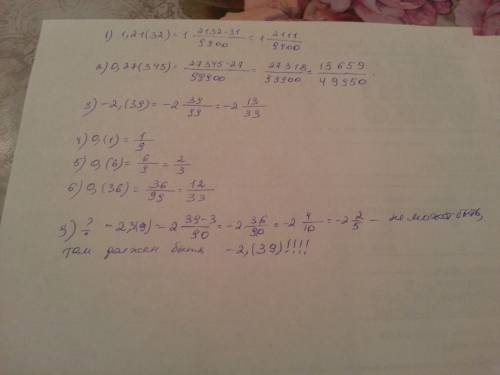 1) 1,21(32) = 1 2132-21/9900 = 1 2111/9900
2) 0,27(345) = 27345-27/99900 = 27318/99900 = 13659/49950.
3) -2,(39) = -2 39/99 = -2 13/33
4) 0,(1) = 1/9
5) 0,(6) = 6/9 = 2/3
6) 0,(36) = 36/99 = 12/33
3) ? - 2,3(9) = -2 39-3/90 = -2 36/90 = -2 4/10 = -2 2/5 - не может быть,
там должен быть -2,(39)!!!!